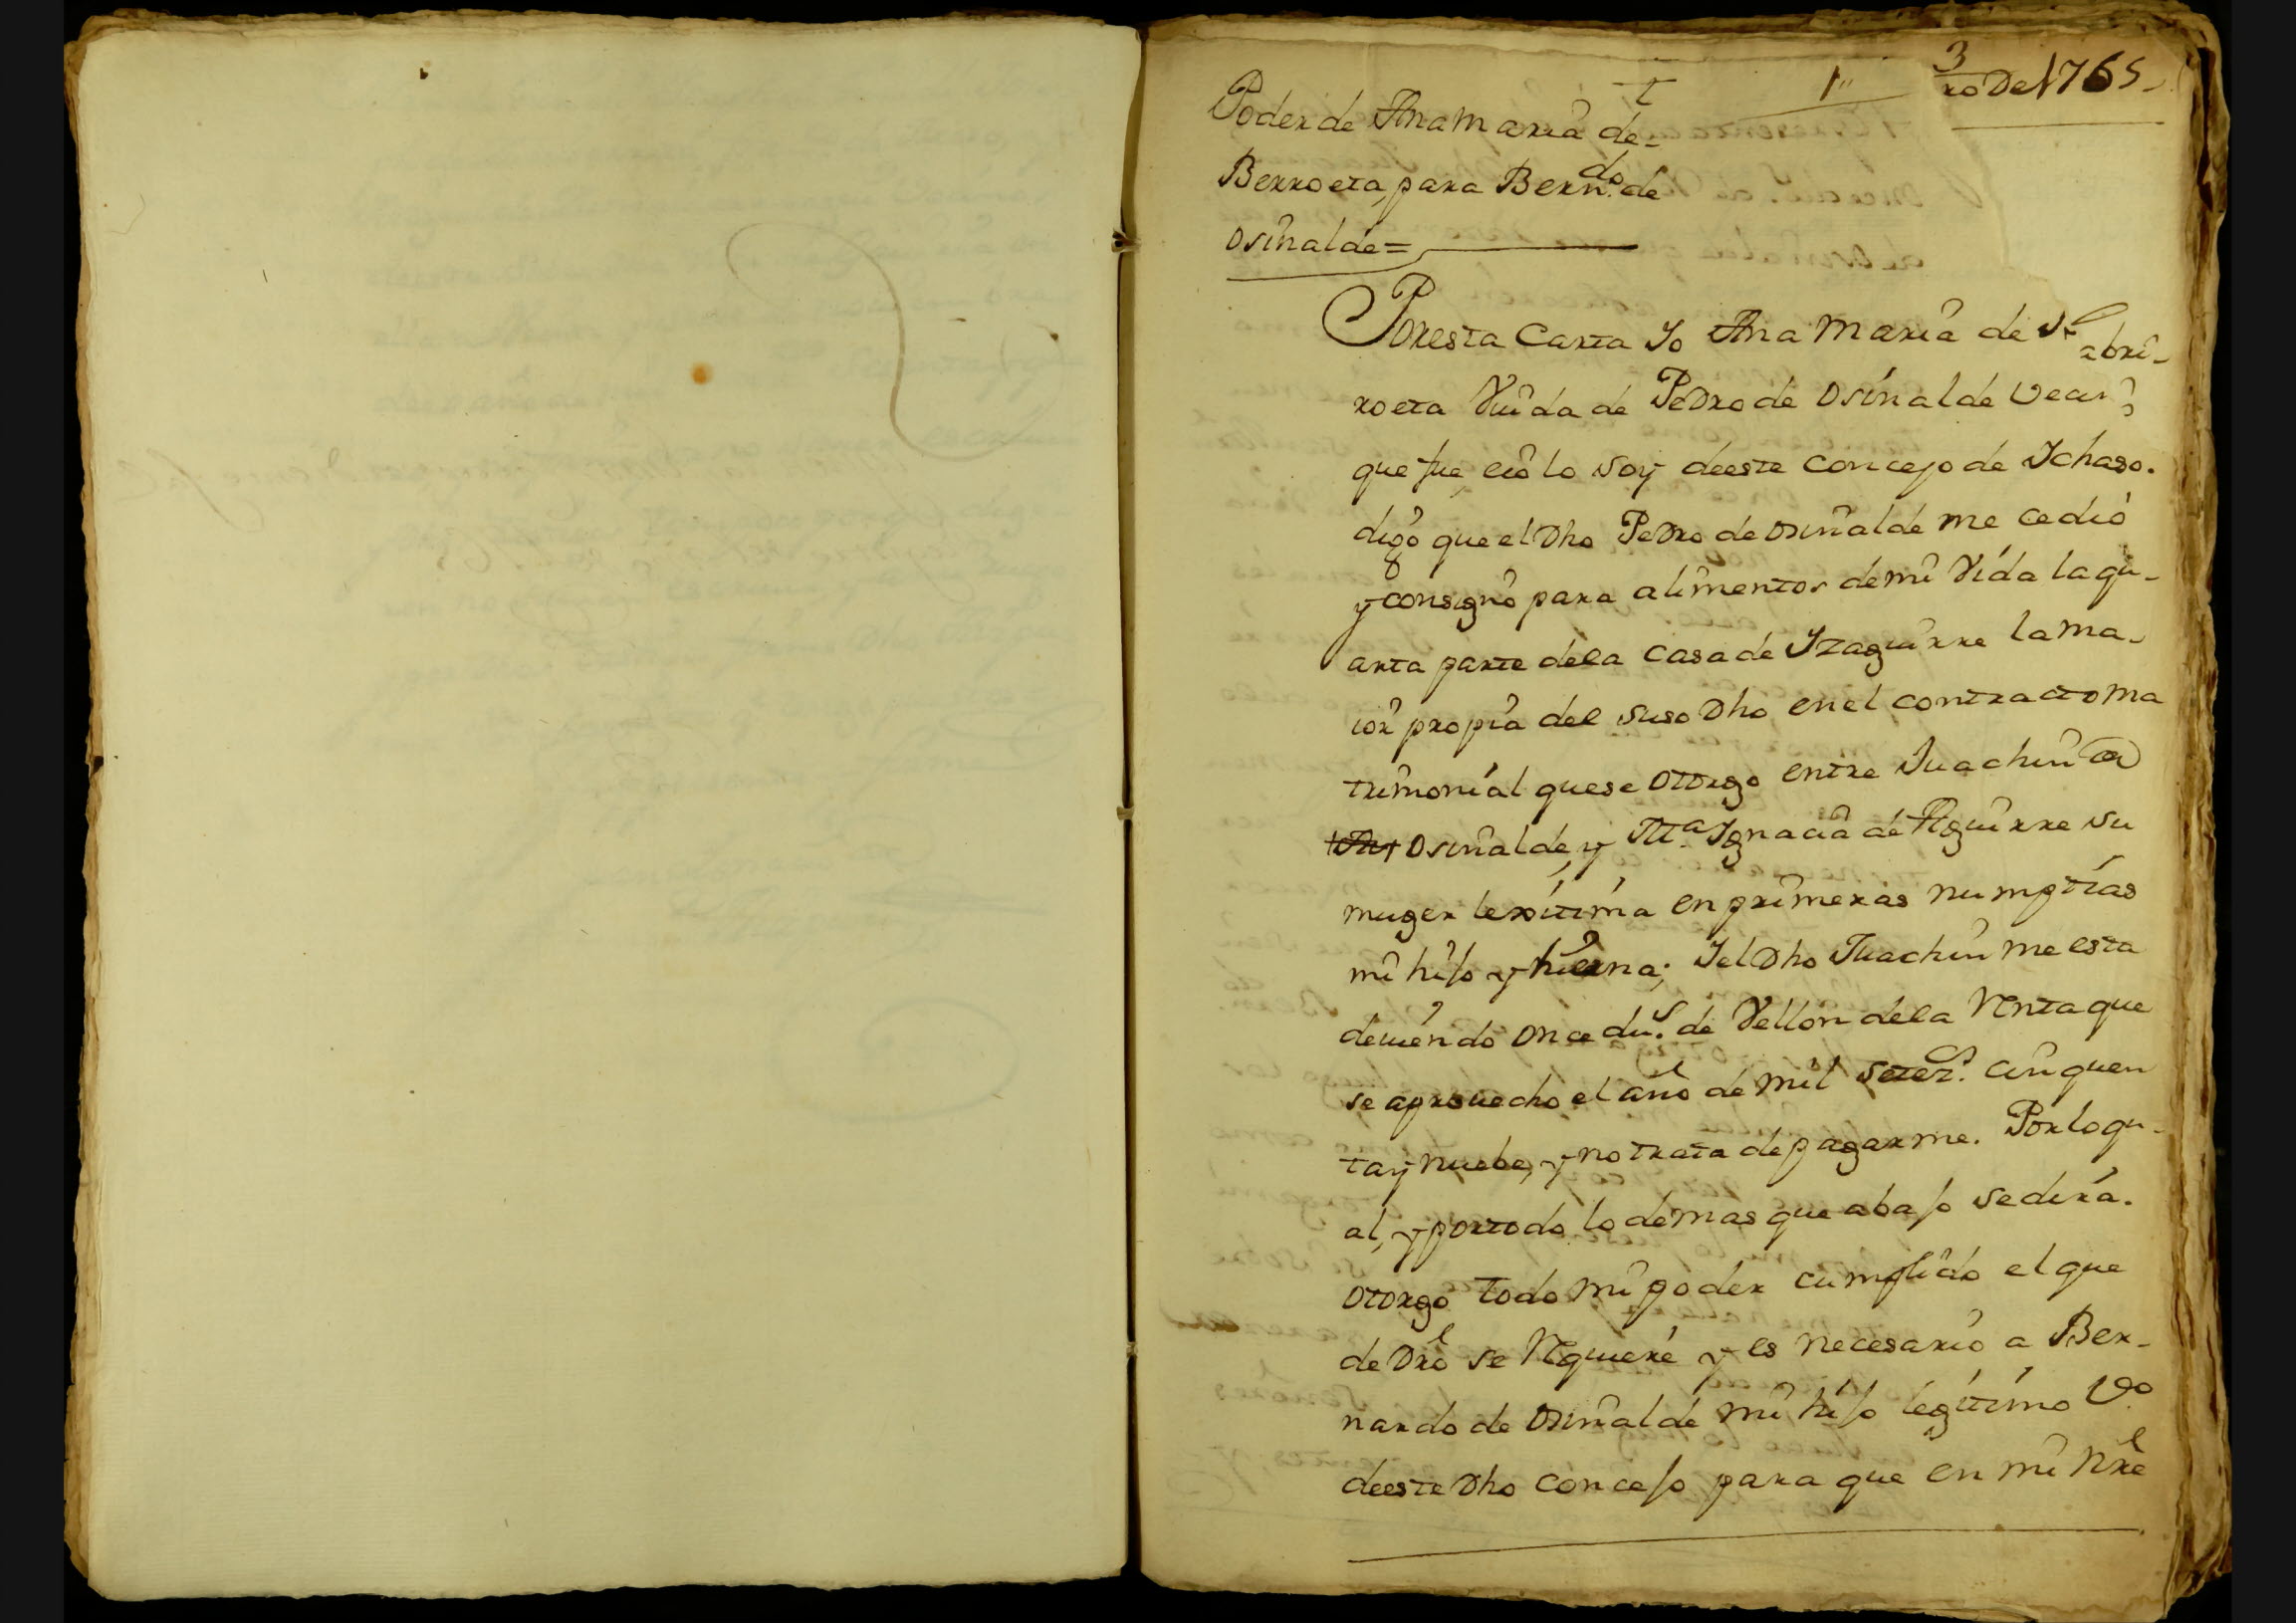 1
3
ro De 1765
Poder de Ana Maria de
Berroeta, para Bern.do de
Osinalde =
Por esta Carta Yo Ana Maria de
roeta Viuda de Pedro de Osinalde
que fue, eio lo soy deeste concejo de Ichaso.
digo que el Dho Pedro de Osinalde me cedió
y consignó para alimentos de mi Vida la qu-
arta parte dela Casa de Yzaguirre la ma-
ior propia del suso Dho en el contracto ma
trimonial que se otorgo entre Juachin
Osinalde, y M.a Ignacia de Aguirre su
muger lexitima en primeras numptias
mi hijo y hierna; Y el Dho Juachin me esta
deuiendo once du.s de Vellon dela Renta que
se aprouecho el año de mil setez.s cinquen
ta y nuebe, y no trata de pagarme. Por lo qu-
al, y por todo lo demas que abajo se dirá.
otorgo todo mi poder cumplido el que
de Dro se Requiere y es necesario a Ber-
nardo de Osinalde mi hijo legitimo V.o
deeste Dho concejo para que en mi Nre